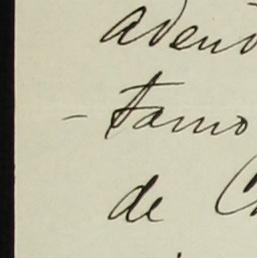 adent
- tamo
de C